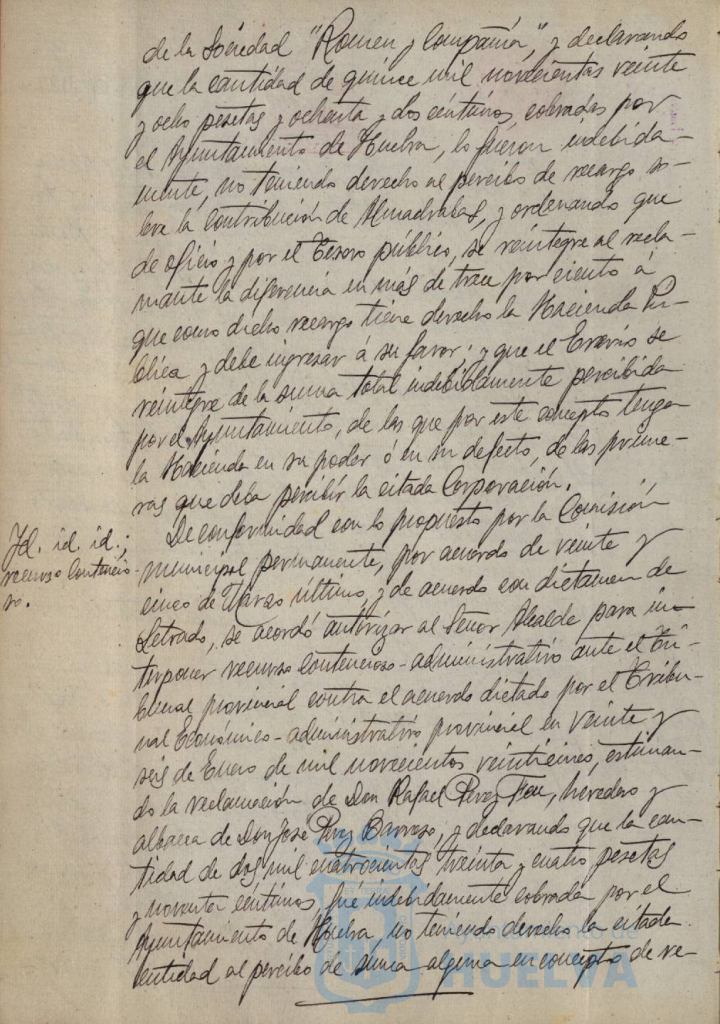 de la Sociedad "Romeu y Compañía", y declarando
que la cantidad de quince mil novecientas veinte
y ocho pesetas y ochenta y dos céntimos, cobradas por
el Ayuntamiento de Huelva, lo fueron indebida-
mente, no teniendo derecho al percibo de recargo so-
bre la contribución de Almadrabas, y ordenando que
de oficio y por el Tesoro público, se reintegre al recla-
mante la diferencia en más de trece por ciento á
que como dicho recargo tiene derecho la Hacienda Pú-
blica y debe ingresar á su favor; y que el Erario se
reintegre de la suma total indebidamente percibida
por el Ayuntamiento, de las que por este concepto tenga
la Hacienda en su poder ó en su defecto, de las prime-
ras que deba percibir la citada Corporación.
Id. id. id.;
recurso contencio-
so.
De conformidad con lo propuesto por la Comisión
municipal permanente, por acuerdo de veinte y
cinco de Marzo último, y de acuerdo con dictamen de
Letrado, se acordó autorizar al Señor Alcalde para in-
terponer recurso contencioso-administrativo ante el Tri-
bunal provincial contra el acuerdo dictado por el Tribu-
nal Económico-administrativo provincial en veinte y
seis de Enero de mil novecientos veinticinco, estiman-
do la reclamación de Don Rafael Pérez, heredero y
albacea de Don José Pérez Barroso, y declarando que la can-
tidad de dos mil cuatrocientas treinta y cuatro pesetas
y noventa céntimos, fué indebidamente cobrada por el
Ayuntamiento de Huelva no teniendo derecho la citada
entidad al percibo de suma alguna en concepto de re-
HUELVA